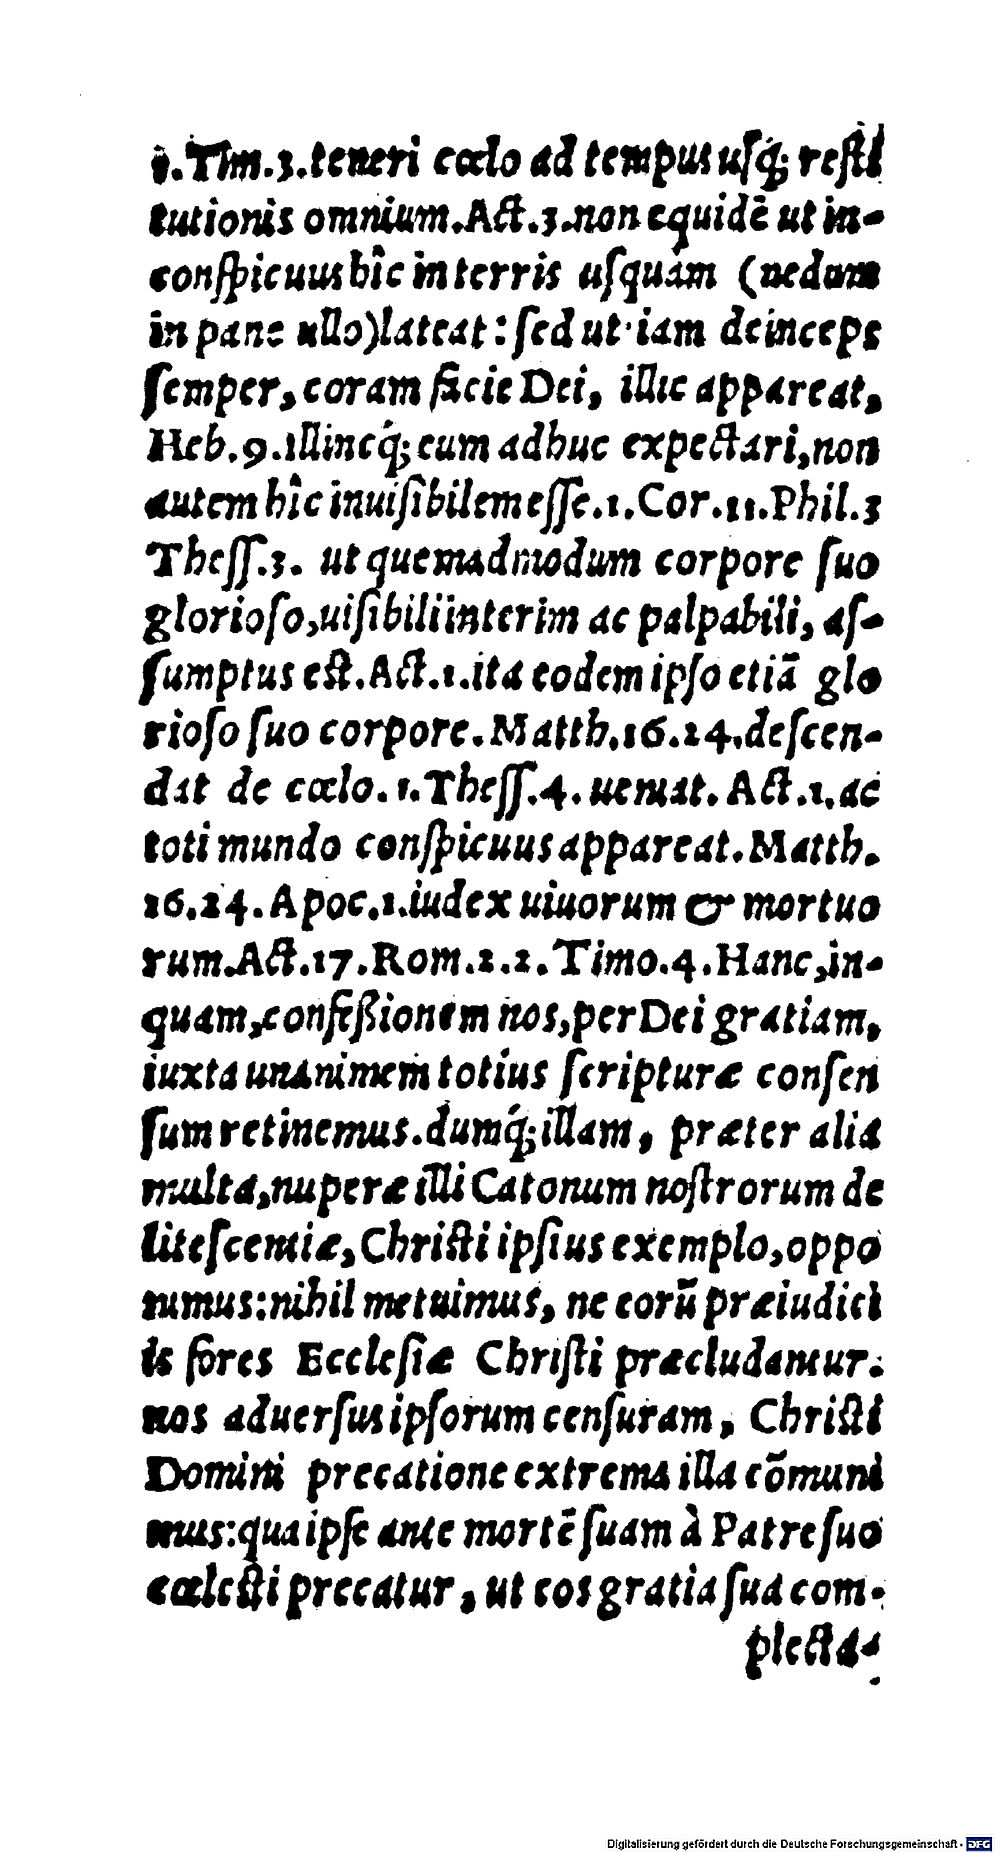 1. Tim. 3. teneri cœlo ad tempus uſq́; reſti
tutionis omnium. Act. 3. non equidē ut in-
conſpicuus hîc in terris uſquàm (nedum
in pane ullo) lateat: ſed ut iam deinceps
ſemper, coram facie Dei, illic appareat,
Heb. 9. illincq́; eum adhuc expectari, non
autem hîc inuiſibilem eſſe. 1. Cor. 11. Phil. 3
Theſſ. 3. ut quemadmodum corpore ſuo
glorioſo, uiſibili interim ac palpabili, aſ-
ſumptus eſt. Act. 1. ita eodem ipſo etiā glo
rioſo ſuo corpore. Matth. 16. 24. deſcen-
dat de cœlo. 1. Theſſ. 4. ueniat. Act. 1. ac
toti mundo conſpicuus appareat. Matth.
16. 24. Apoc. 1. iudex uiuorum & mortuo
rum. Act. 17. Rom. 2. 2. Timo. 4. Hanc, in-
quam, confeßionem nos, per Dei gratiam,
iuxta unanimem totíus ſcripturæ conſen
ſum retinemus. dumq́; illam, præter alia
multa, nuperæ illi Catonum noſtrorum de
liteſcentiæ, Chriſti ipſius exemplo, oppo
nimus: nihil metuimus, ne eorū præiudici
is fores Eccleſiæ Chriſti præcludantur.
nos aduerſus ipſorum cenſuram, Chriſti
Domini precatione extrema illa cōmuni
mus: qua ipſe ante mortē ſuam à Patre ſuo
cœleſti precatur, ut eos gratia ſua com-
plecta-
Digitalisierung gefördert durch die Deutsche Forschungsgemeinschaft - DFG